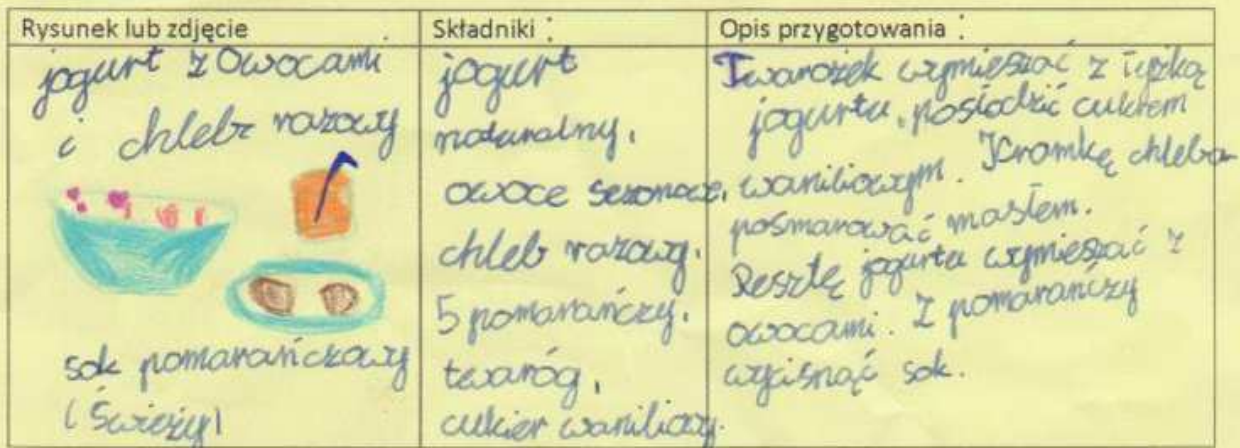 Rysunek lub zdjęcie :
jogurt z owocami
i chleb razowy
sok pomarańczowy
(świeży)
Składniki :
jogurt
naturalny,
owoce sezonowe,
chleb razowy,
5 pomarańczy,
twaróg,
cukier waniliowy.
Opis przygotowania :
Twarożek wymieszać z łyżką
jogurtu, posłodzić cukrem
waniliowym. Kromkę chleba
posmarować masłem.
Resztę jogurtu wymieszać z
owocami. Z pomarańczy
wycisnąć sok.